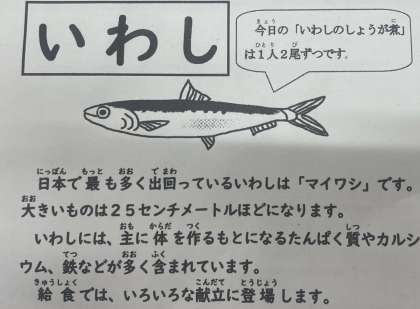 いわし
今日の「いわしのしょうが煮」
は1人2尾ずつです.
日本で最も多く出回っているいわしは「マイワシ」です。
大きいものは25センチメートルほどになります。
いわしには、主に体を作るもとになるたんぱく質やカルシ
ウム、鉄などが多く含まれています。
給食では、いろいろな献立に登場します。